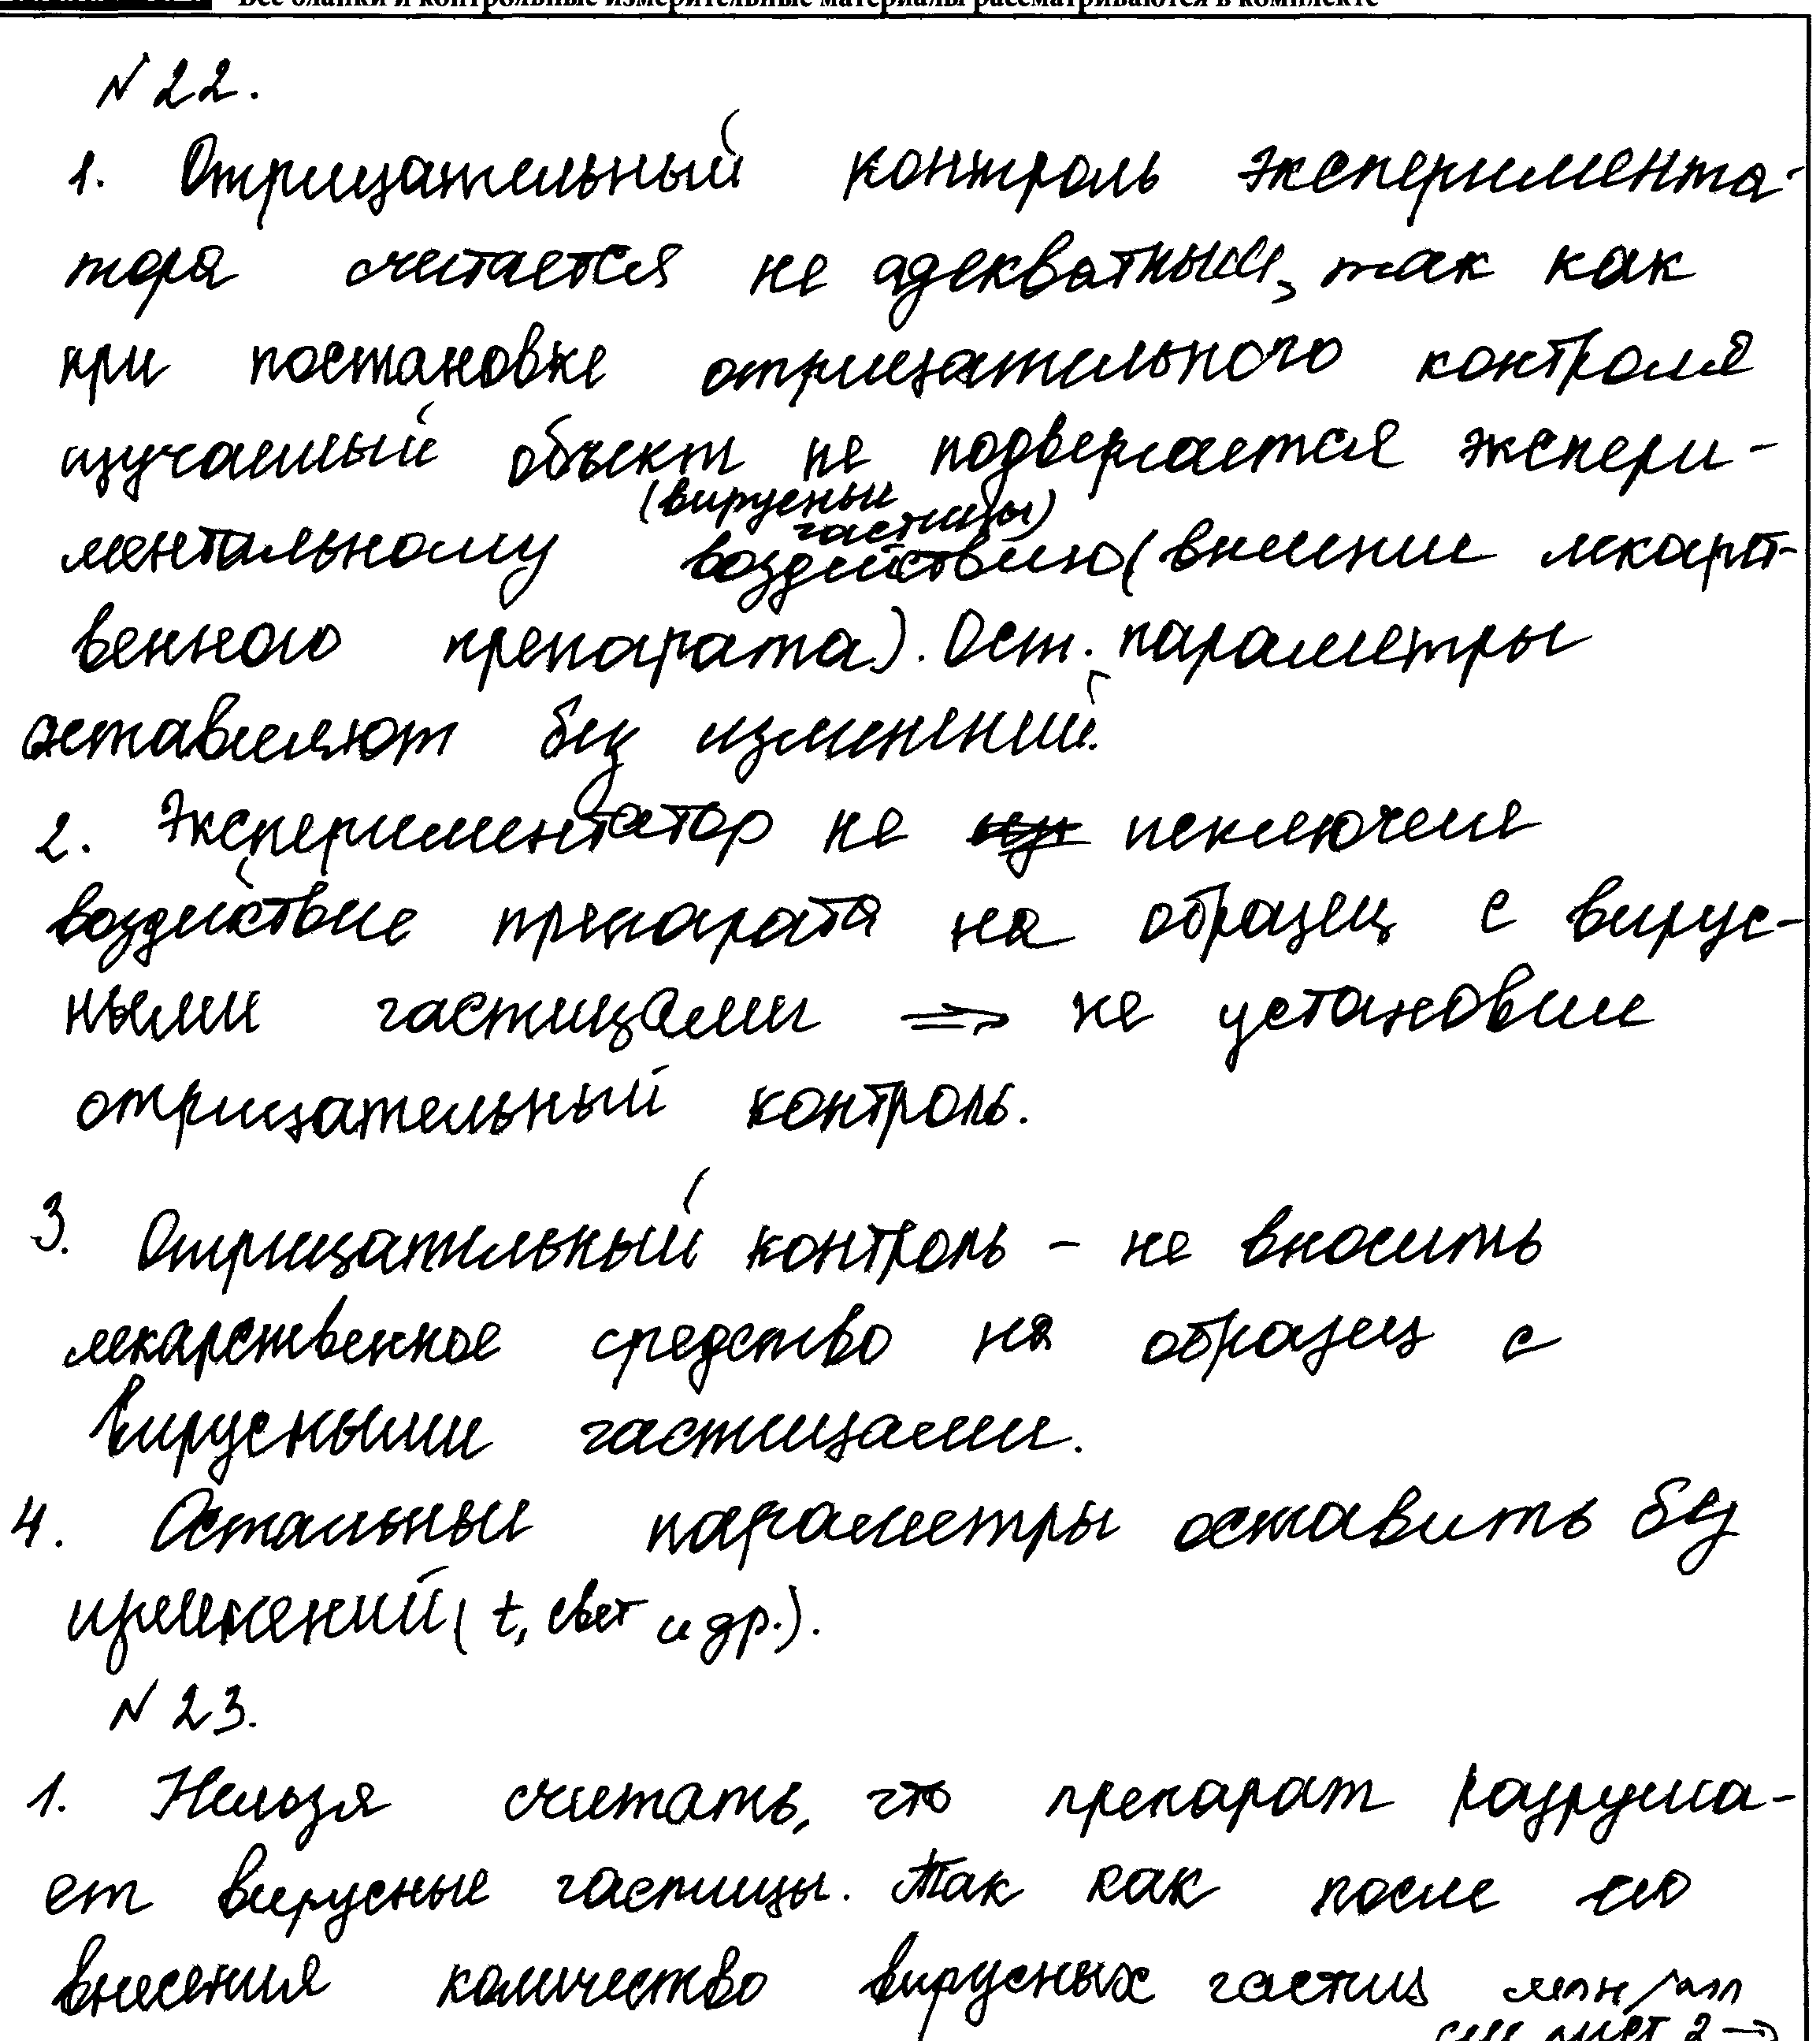 Все бланки и контрольные измерительные материалы рассматриваются в комплекте
N 22.
1. Отрицательный контроль экспримента-
тора считается не адекватным, так как
при постановке отрицательного контроля
изучаемый объект не подвергается экспери-
(вирусные
частицы)
ментальному воздействию (внсение лекарст-
венного препарата). Ост. параметры
оставляют без изменений.
2. Экспериментатор не исключил
воздействие препарата на образец с вирус-
ными частицами => не установил
отрицательный контроль.
3. Отрицательный контроль - не вносить
лекарственное средство на образец с
вирусными частицами.
4. Остальные параметры оставить без
изменений (t, свет и др.).
N 23.
1. Нельзя считать, что препарат разруша-
ет вирусные частицы. Так как после его
внесения количество вирусных частиц млн/мл
см лист 2 →